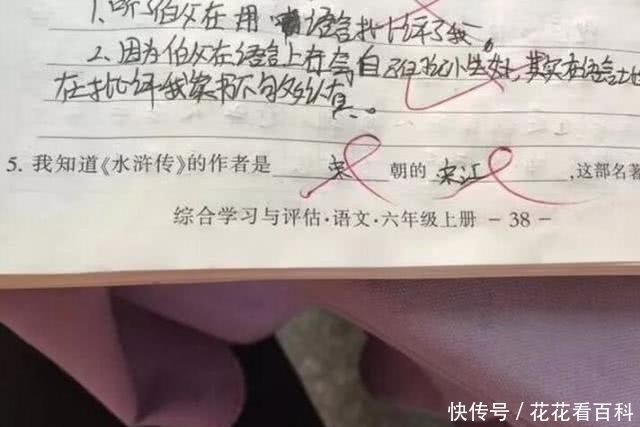 1.听了伯父在用语言批评了我。
2.因为伯父在语言上在夸自己,其实在语言上
在批评我读书不够认真。
5.我知道《水浒传》的作者是宋朝的宋江,这部名著
综合学习与评估·语文·六年级上册-38-
快传号/花花看百科